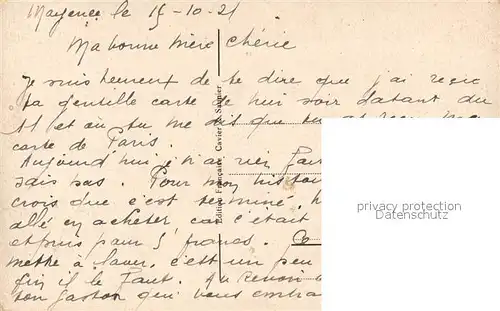 Mayence le 15-10-21
Ma bonne mère chérie
Je suis heureux de te dire que j'ai reçu
ta gentille carte de hier soir datant du
11 et où tu me dis que tu as reçu ma
carte de Paris.
Aujourd'hui je n'ai rien
sais pas. Pour mon
crois que c'est terminé,
allé en acheter, car c'était
et puis pour 5 francs. Ce
mettre à laver, c'est un peu
fin il le faut. Au revoir
ton Gaston qui vous embra
Edition Française Cavier Saunier
privacy protection